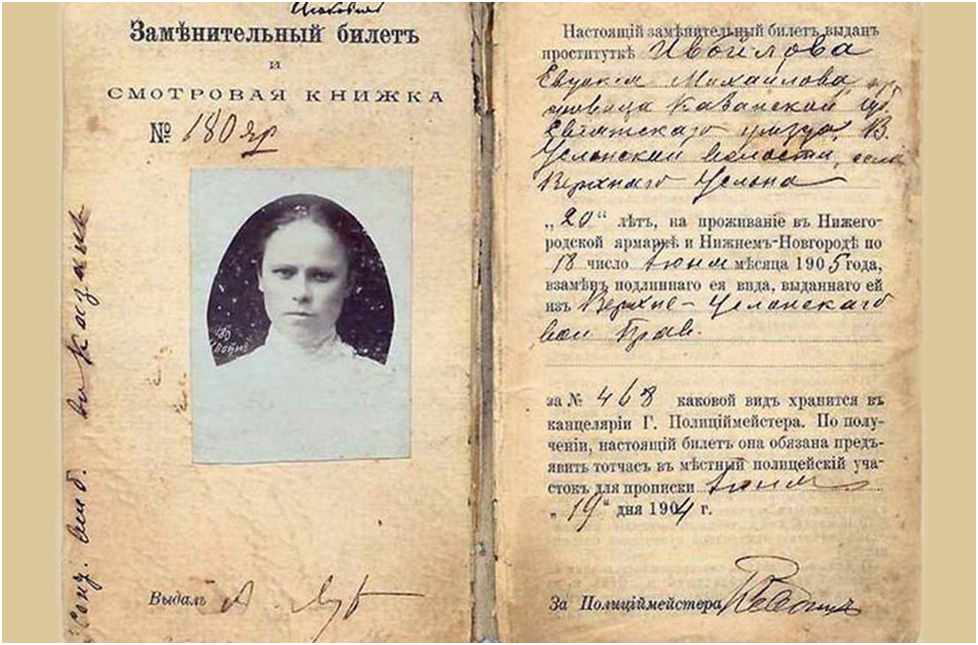 Замѣнительный билетъ
и
СМОТРОВАЯ КНИЖКА
№ 180 яр
Выдалъ
Настоящій замѣнительный билетъ выданъ
проституткѣ Ивойлова
Евдокия Михайлова, кр.
Казанской губ.
уѣзда, В.
Услонской волости, села
Верхнаго Услона
„20“ лѣтъ, на проживаніе въ Нижего-
родской ярмаркѣ и Нижнемъ-Новгородѣ по
18 число Іюня мѣсяца 1905 года,
взамѣнъ подлиннаго ея вида, выданнаго ей
изъ Верхне-Услонскаго
вол. Прав.
за № 468 каковой видъ хранится въ
канцеляріи Г. Полиціймейстера. По полу-
ченіи, настоящій билетъ она обязана предъ-
явить тотчасъ въ мѣстный полицейскій уча-
стокъ для прописки Іюня
„19“ дня 1904 г.
За Полиціймейстера